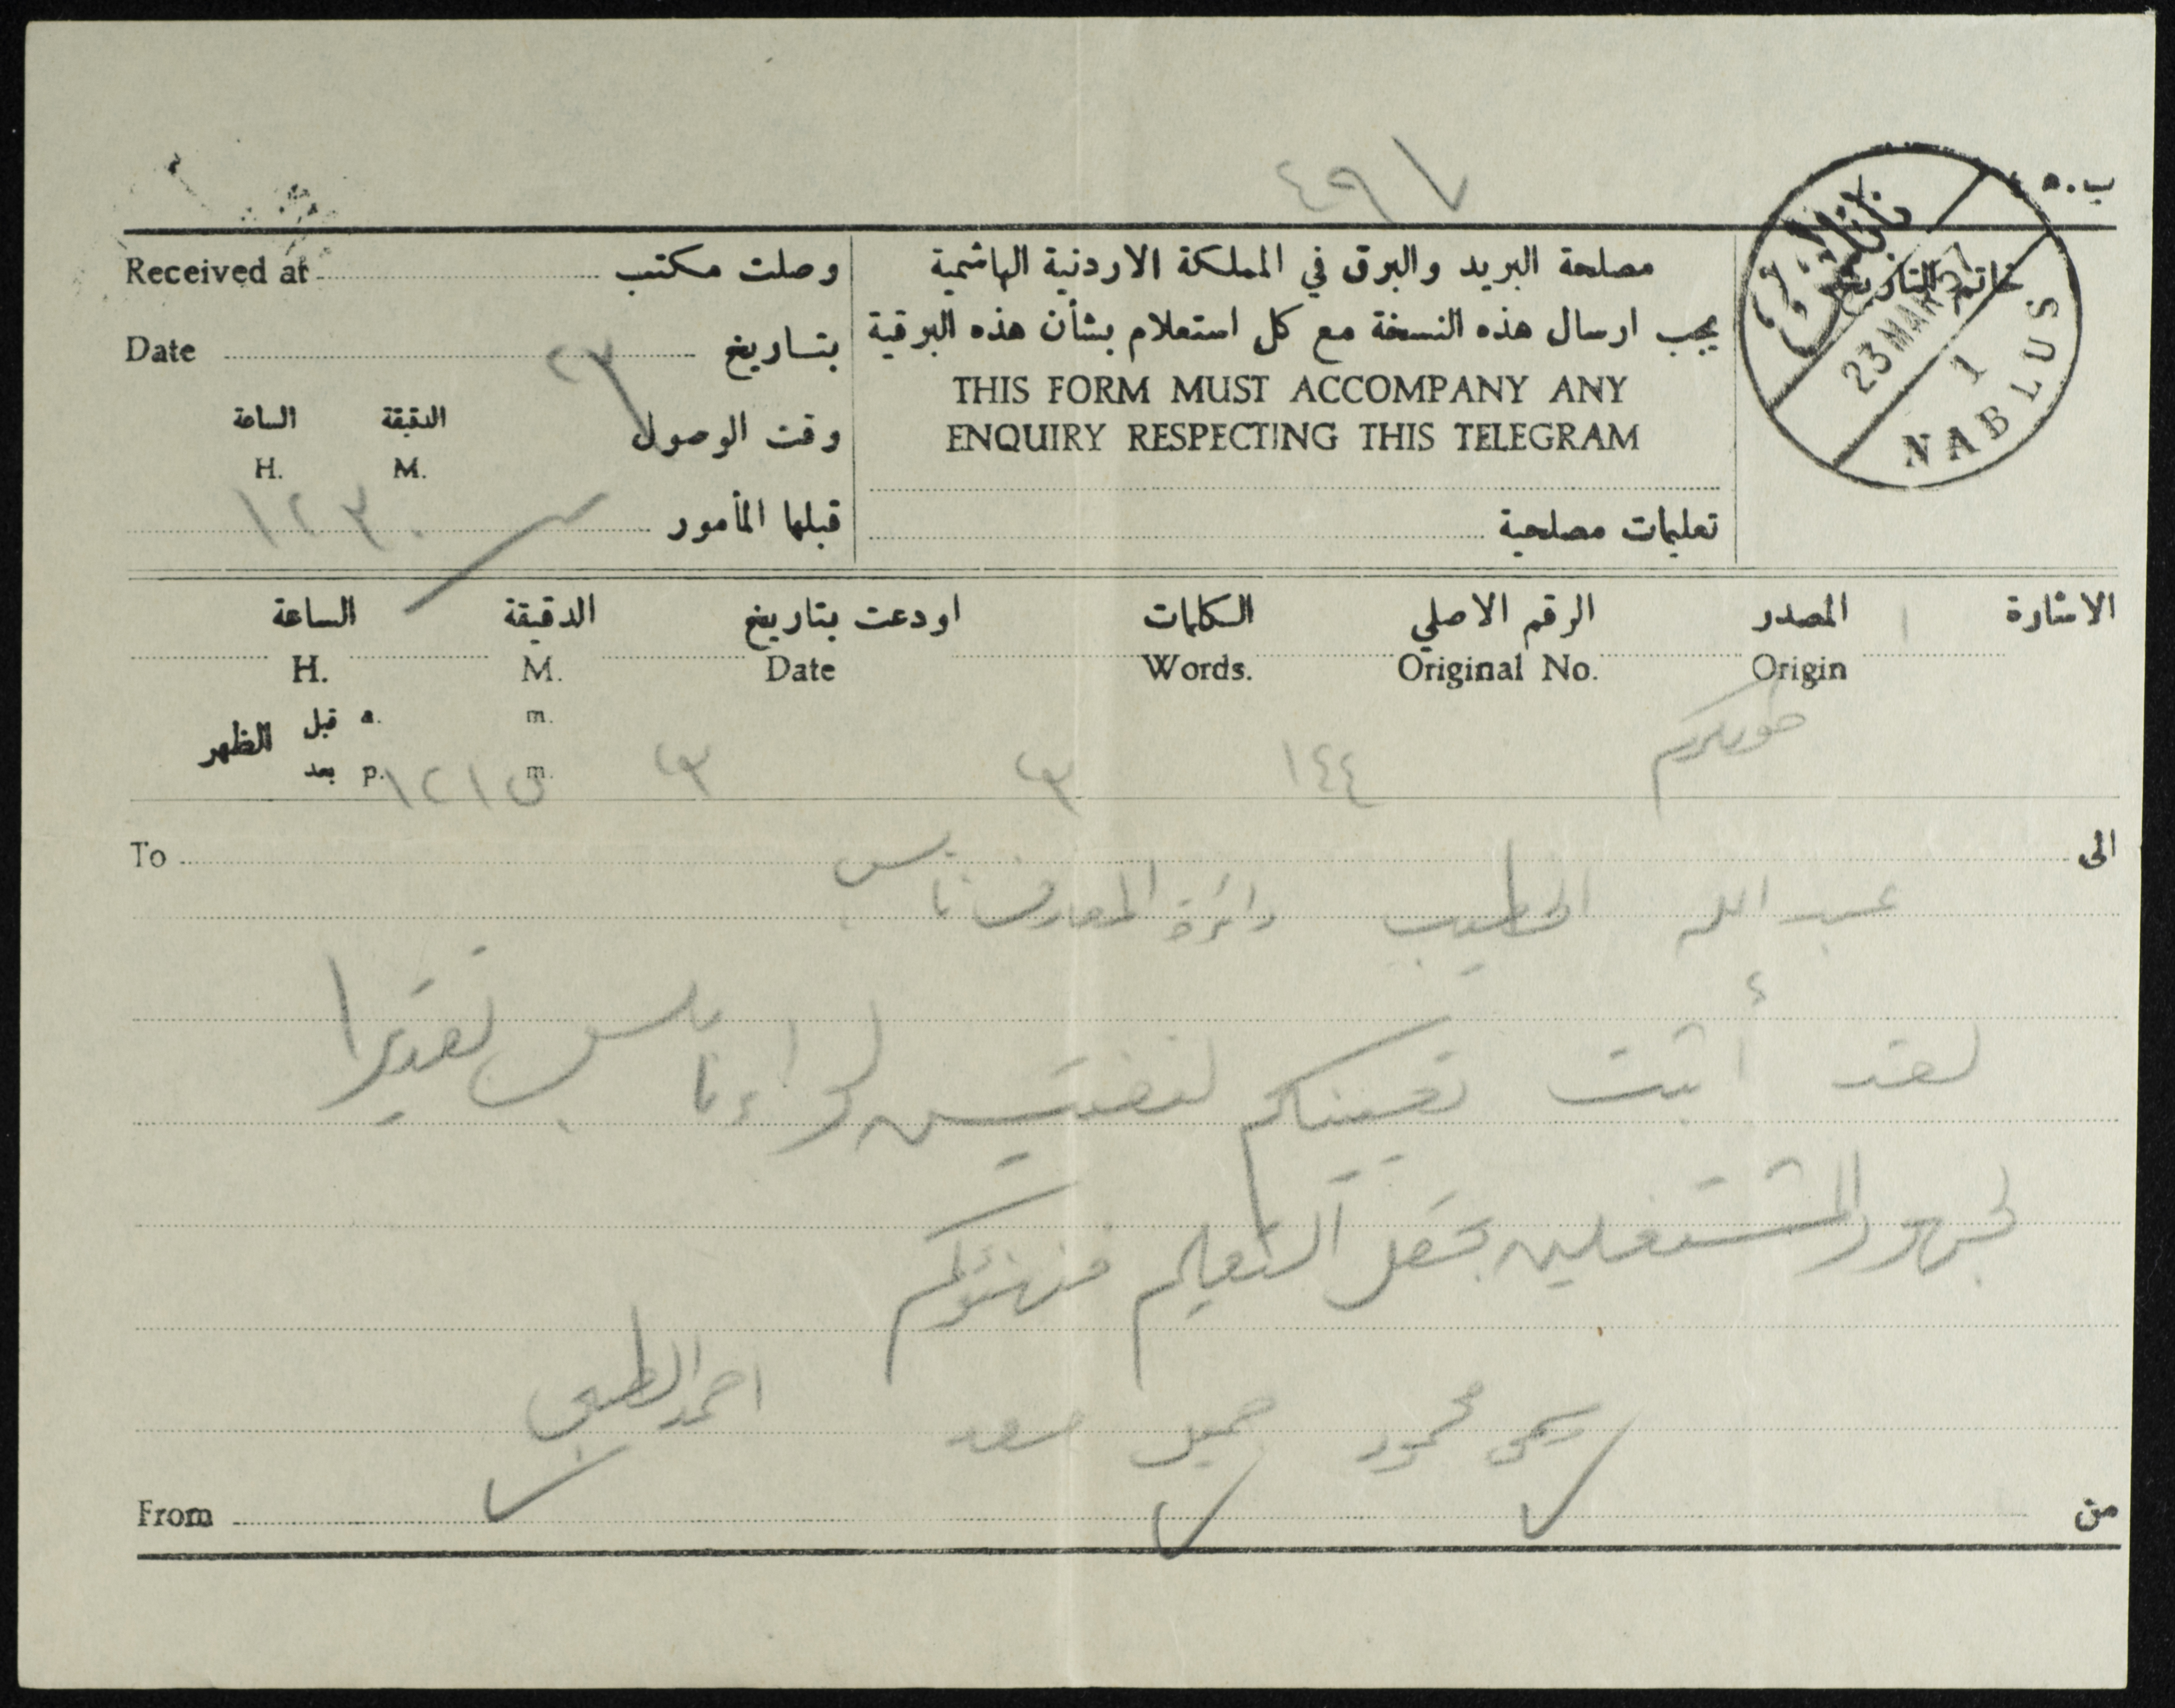 ٤٩٧
ب.٥
مصلحة البريد والبرق في المملكة الاردنية الهاشمية
يجب ارسال هذه النسخة مع كل استعلام بشأن هذه البرقية
THIS FORM MUST ACCOMPANY ANY
ENQUIRY RESPECTING THIS TELEGRAM
تعليمات مصلحية
خاتم التاريخ
نابلس
23 MAR 57
1
NABLUS
Received at وصلت مكتب
Date بتاريخ ٢٣
وقت الوصول الدقيقة الساعة
H. M.
قبلها المأمور ١٢٣٠
الاشارة المصدر الرقم الاصلي الكلمات اودعت بتاريخ الدقيقة الساعة
H. M. Date Words. Original No. Origin
قبل a. m.
الظهر
بعد p. m.
طولكرم ١٤٤ ٢٣ ٢٣ ١٢١٥
To الى
عبد الله الخطيب دائرة المعارف نابلس
لقد أثبت تعيينكم لتفتيش لواء نابلس تقديرا
لجهود المشتغلين بحقل التعليم فنهنؤكم
محمود جميل سعد احمد
From من